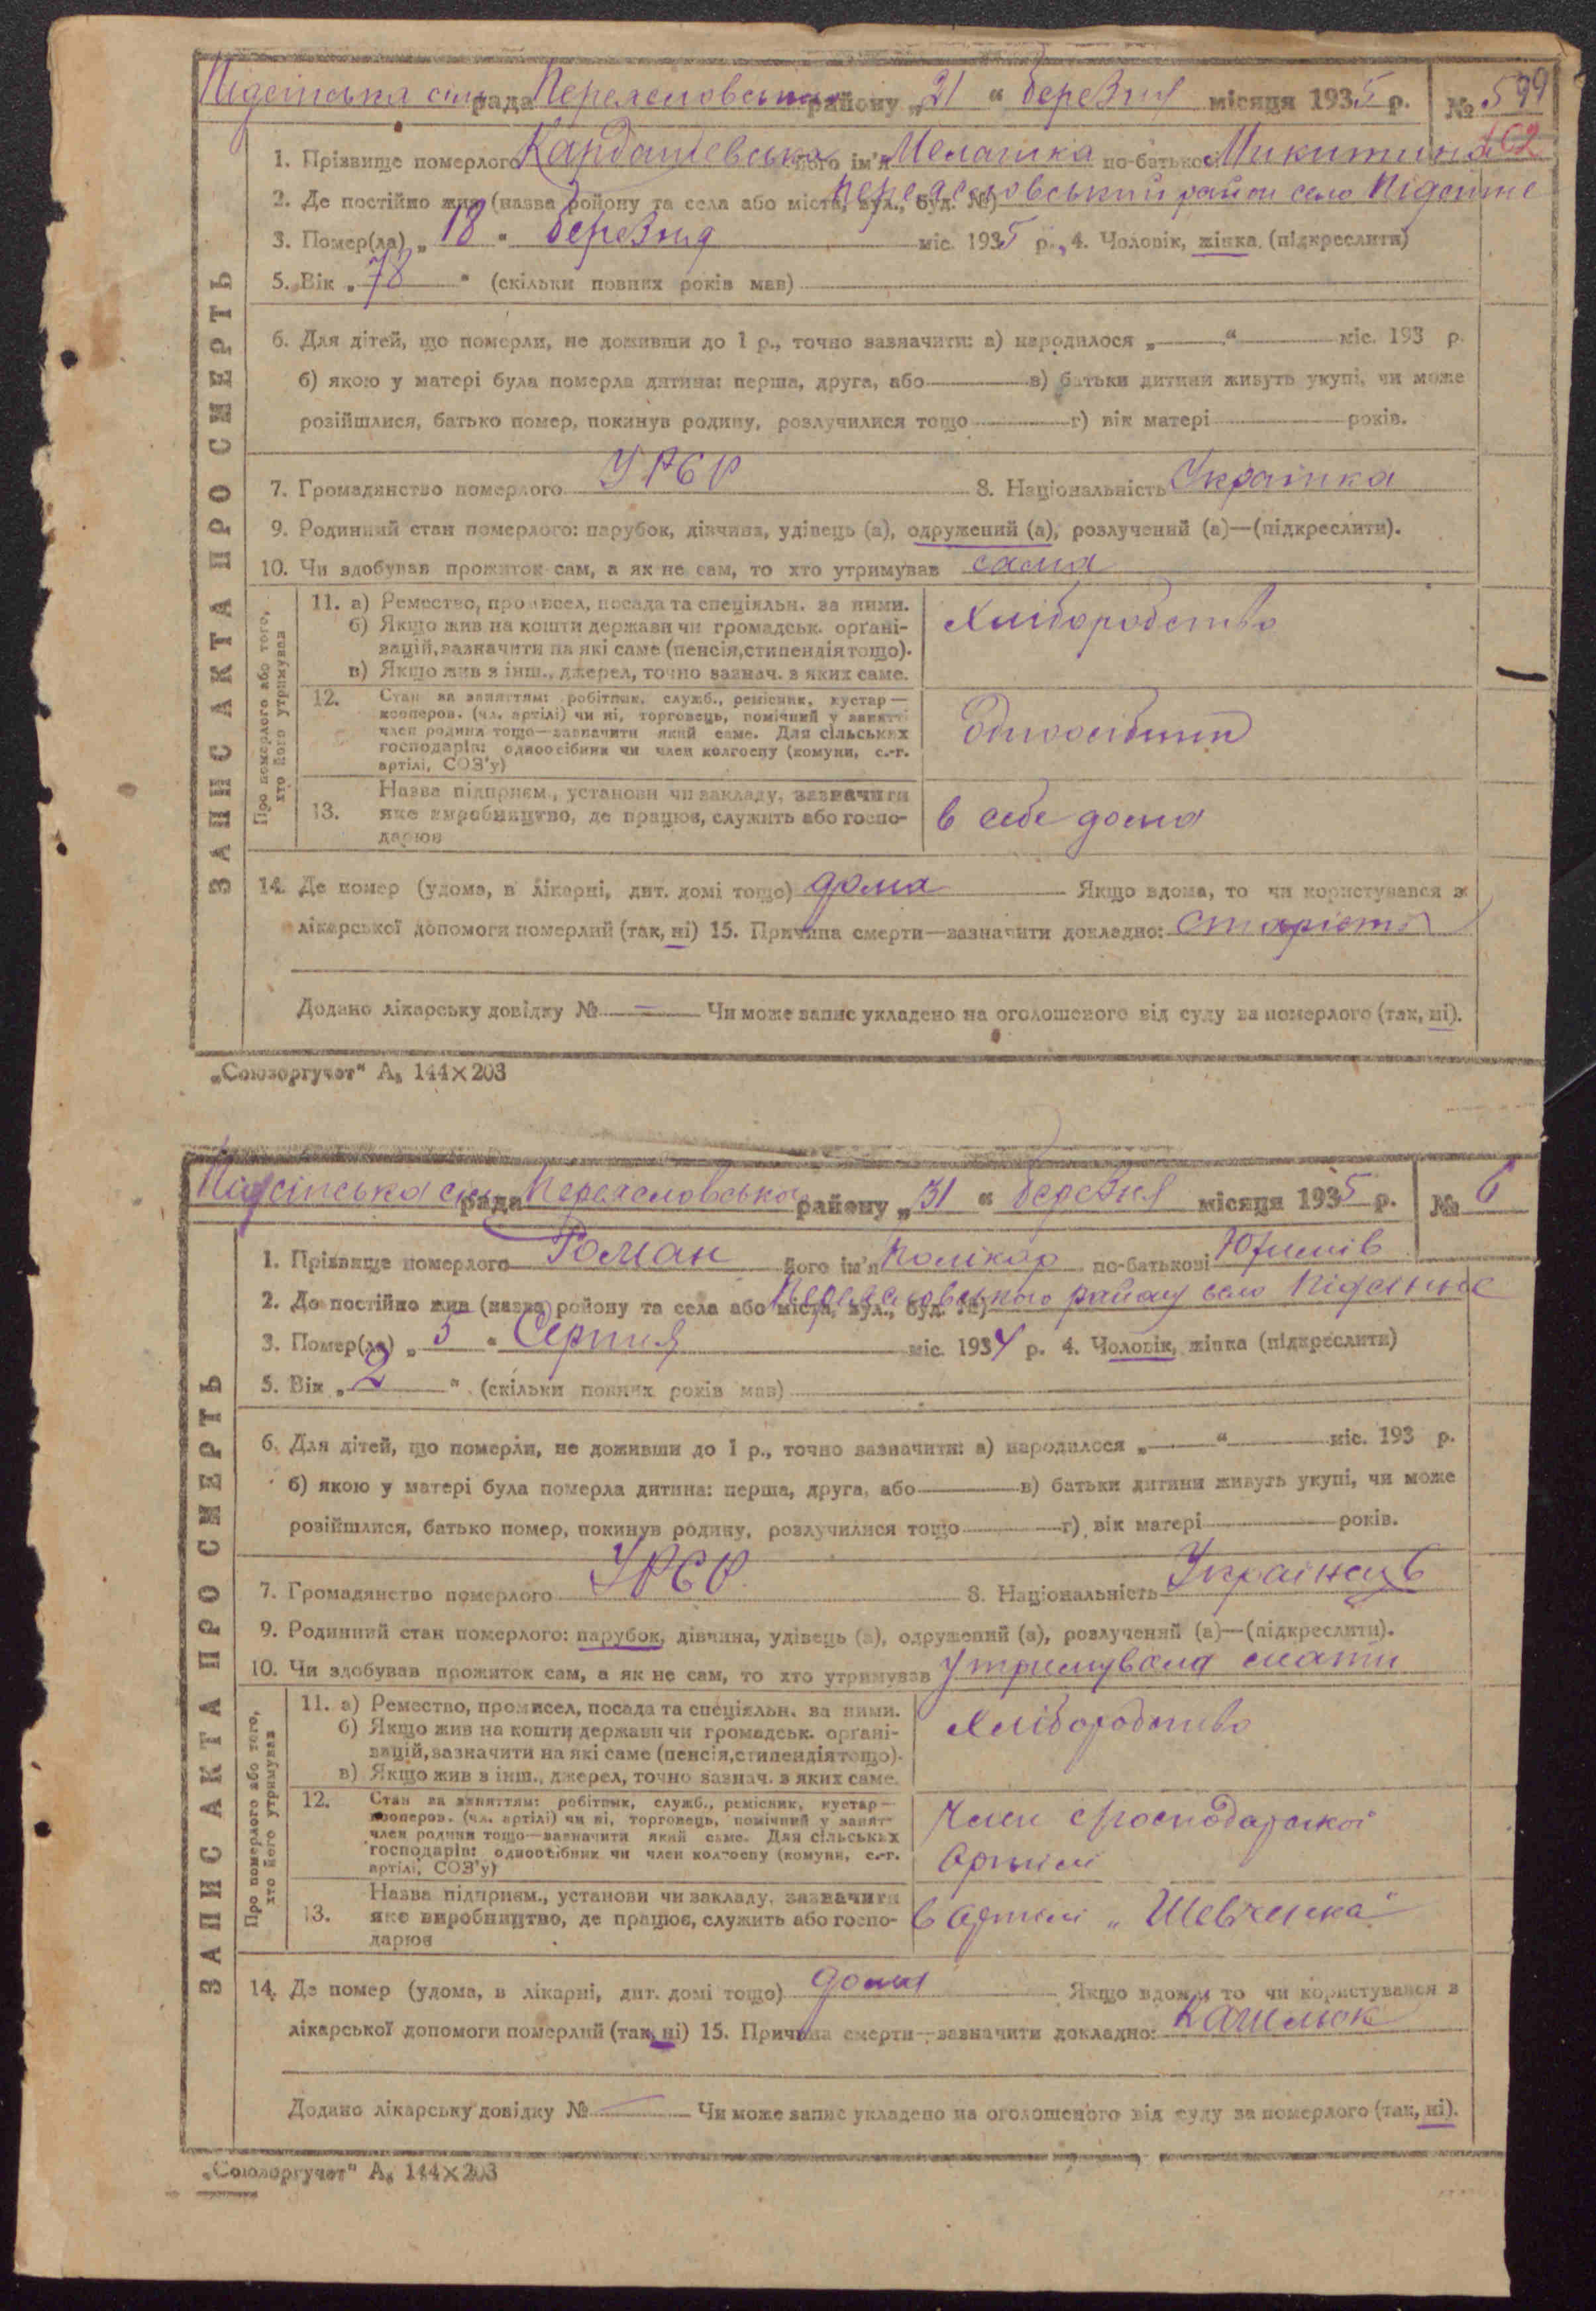 Підсінська сіл рада Переясловського району „21“ березня місяця 1935 р. № 5 99
102
1. Прізвище померлого Кардашевська його ім'я Мелашка по-батькові Микитина
2. Де постійно жив (назва району та села або міста, вул., буд. №) Переясловський район село Підсінне
3. Помер(ла) „18“ березня міс. 1935 р., 4. Чоловік, жінка (підкреслити)
5. Вік „78“ (скільки повних років мав)
6. Для дітей, що померли, не доживши до 1 р., точно зазначити: а) народилося „ “ міс. 193 р.
б) якою у матері була померла дитина: перша, друга, або в) батьки дитини живуть укупі, чи може
розійшлися, батько помер, покинув родину, розлучилися тощо г) вік матері років.
7. Громадянство померлого УРСР 8. Національність Українка
9. Родинний стан померлого: парубок, дівчина, удівець (а), одружений (а), розлучений (а)—(підкреслити).
10. Чи здобував прожиток сам, а як не сам, то хто утримував сама
ЗАПИС АКТА ПРО СМЕРТЬ
Про померлого або того, хто його утримував
11. а) Ремество, промисел, посада та спеціяльн. за ними.
б) Якщо жив на кошти держави чи громадськ. орґані-
зацій, зазначити на які саме (пенсія, стипендія тощо).
в) Якщо жив з інш., джерел, точно зазнач. з яких саме.
Хліборобство
12. Стан за заняттям: робітник, служб., ремісник, кустар—
кооперов. (чл. артілі) чи ні, торговець, помічний у занятті
член родини тощо—зазначити який саме. Для сільських
господарів: одноосібник чи член колгоспу (комуни, с.-г.
артілі, СОЗ'у)
Одноосібник
13. Назва підприєм., установи чи закладу, зазначити
яке виробництво, де працює, служить або госпо-
дарює
в себе дома
14. Де помер (удома, в лікарні, дит. домі тощо) дома Якщо вдома, то чи користувався з
лікарської допомоги померлий (так, ні) 15. Причина смерти—зазначити докладно: старість
Додано лікарську довідку № — Чи може запис укладено на оголошеного від суду за померлого (так, ні).
„Союзоргучет“ А₅ 144×203
Підсінська сіл рада Переясловська району „31“ березня місяця 1935 р. № 6
1. Прізвище померлого Роман його ім'я Полікар по-батькові
2. Де постійно жив (назва району та села або міста, вул., буд. №) Переясловського району село Підсінне
3. Помер(ла) „5“ Серпня міс. 1934 р. 4. Чоловік, жінка (підкреслити)
5. Вік „2“ (скільки повних років мав)
6. Для дітей, що померли, не доживши до 1 р., точно зазначити: а) народилося „ “ міс. 193 р.
б) якою у матері була померла дитина: перша, друга, або в) батьки дитини живуть укупі, чи може
розійшлися, батько помер, покинув родину, розлучилися тощо г) вік матері років.
7. Громадянство померлого УРСР 8. Національність Українець
9. Родинний стан померлого: парубок, дівчина, удівець (а), одружений (а), розлучений (а)—(підкреслити).
10. Чи здобував прожиток сам, а як не сам, то хто утримував Утримувала мати
ЗАПИС АКТА ПРО СМЕРТЬ
Про померлого або того, хто його утримував
11. а) Ремество, промисел, посада та спеціяльн. за ними.
б) Якщо жив на кошти держави чи громадськ. орґані-
зацій, зазначити на які саме (пенсія, стипендія тощо).
в) Якщо жив з інш., джерел, точно зазнач. з яких саме.
Хліборобство
12. Стан за заняттям: робітник, служб., ремісник, кустар—
кооперов. (чл. артілі) чи ні, торговець, помічний у занят
член родини тощо—зазначити який саме. Для сільських
господарів: одноосібник чи член колгоспу (комуни, с.-г.
артілі, СОЗ'у)
Член сгосподарської
Артілі
13. Назва підприєм., установи чи закладу, зазначити
яке виробництво, де працює, служить або госпо-
дарює
в Артілі „Шевченка“
14. Де помер (удома, в лікарні, дит. домі тощо) дома Якщо вдома, то чи користувався з
лікарської допомоги померлий (так, ні) 15. Причина смерти—зазначити докладно: Кашлюк
Додано лікарську довідку № — Чи може запис укладено на оголошеного від суду за померлого (так, ні).
„Союзоргучет“ А₅ 144×203